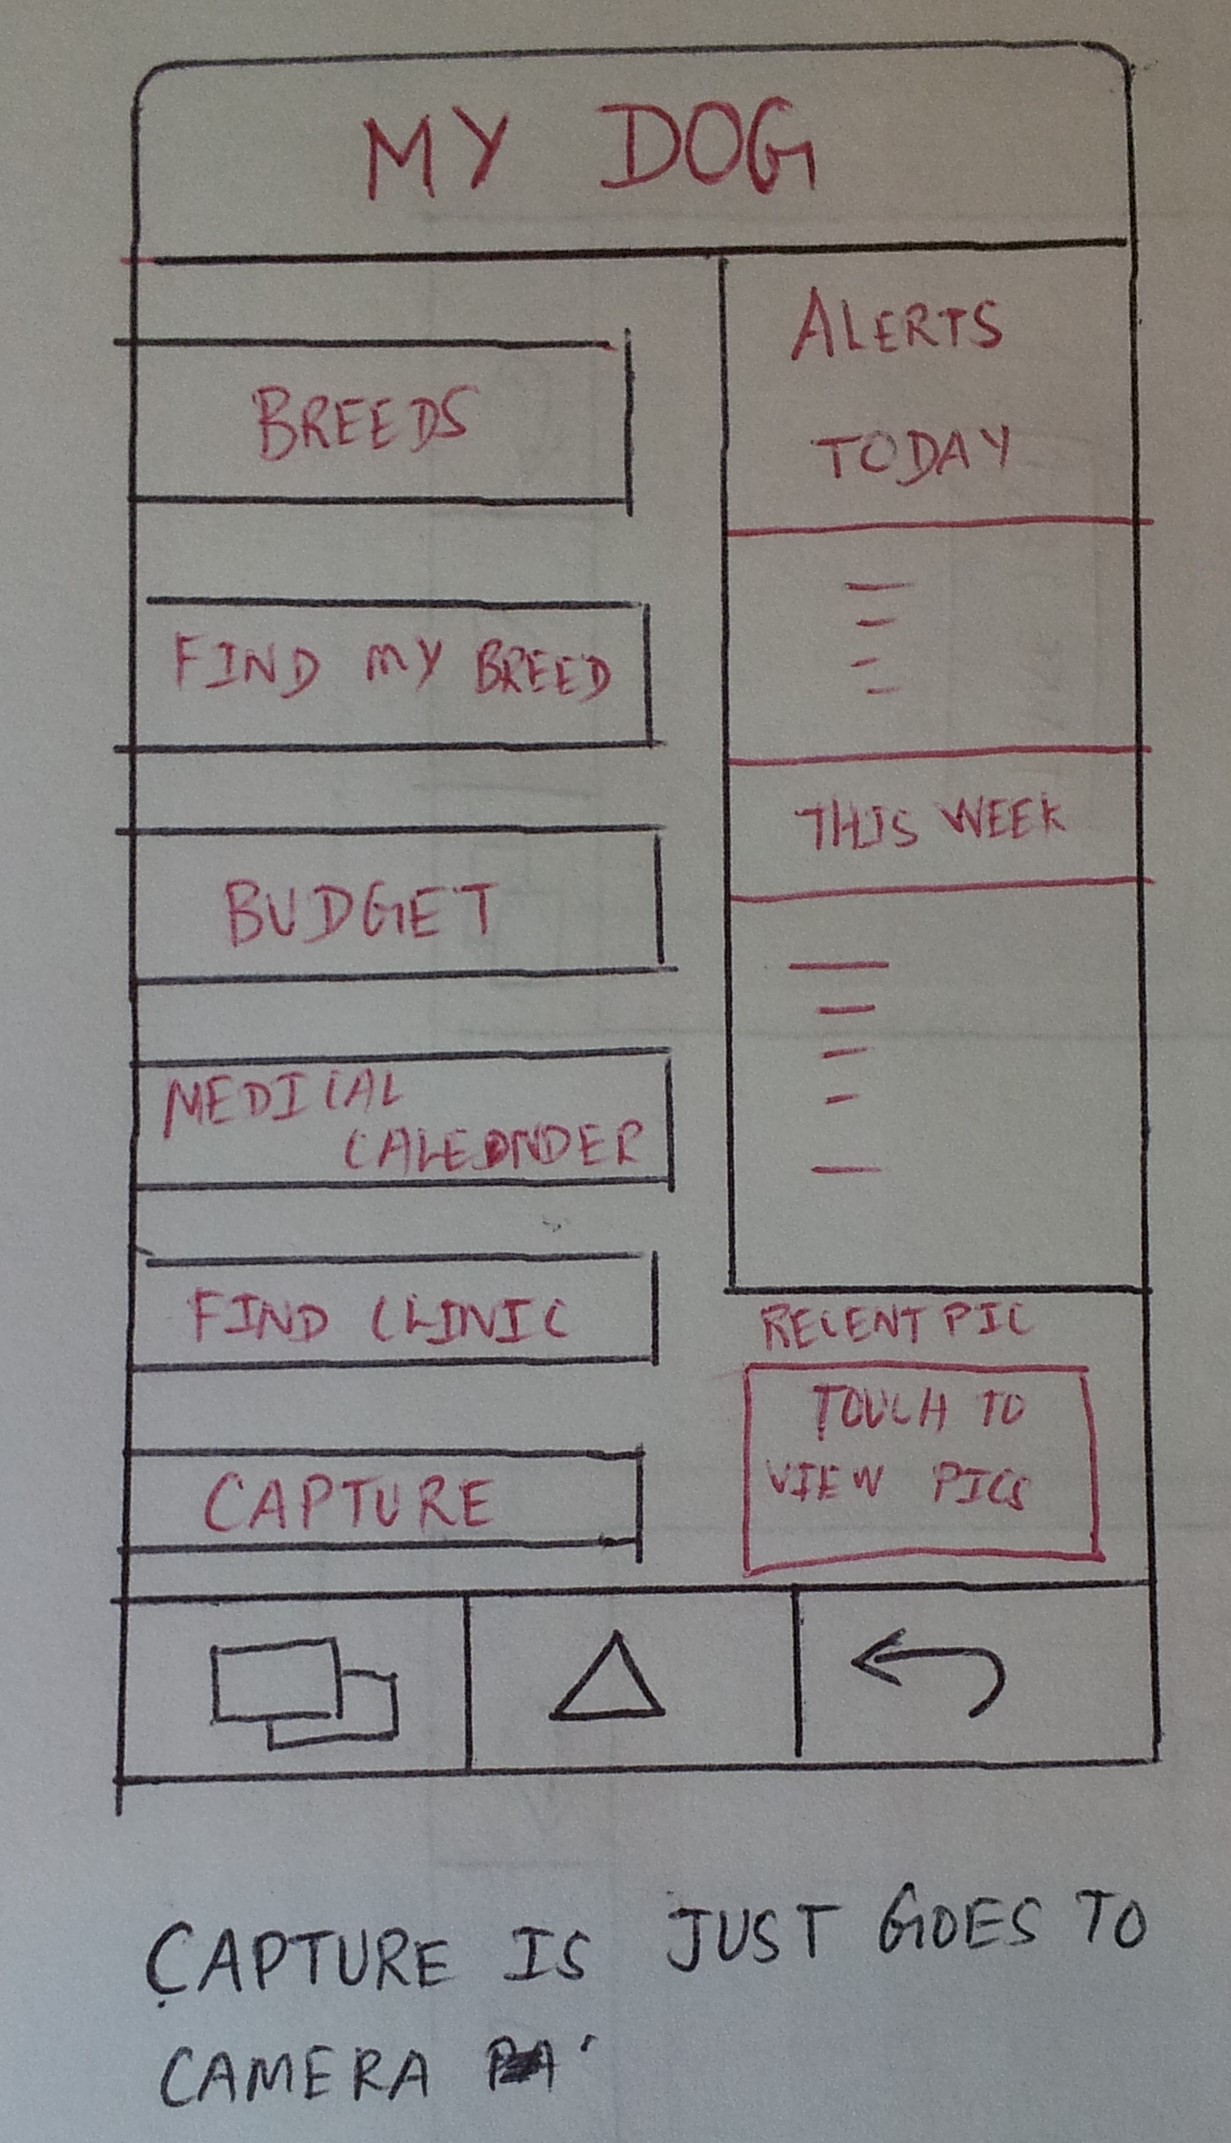 MY DOG
BREEDS
FIND MY BREED
BUDGET
MEDICAL
CALENDER
FIND CLINIC
CAPTURE
ALERTS
TODAY
THIS WEEK
RECENT PIC
TOUCH TO
VIEW PICS
CAPTURE IS JUST GOES TO
CAMERA